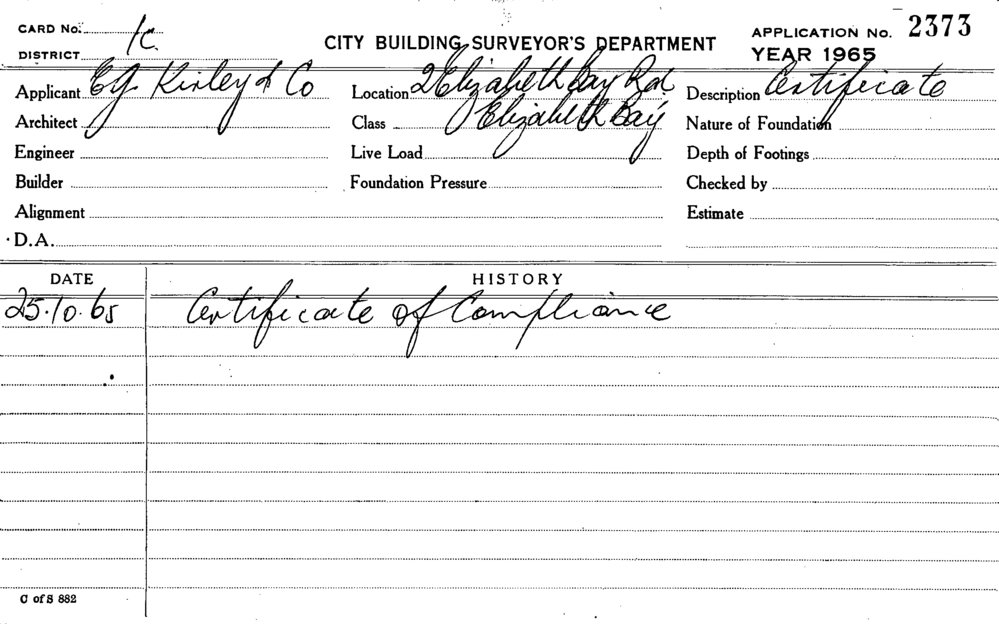 CARD No. 1c
DISTRICT
CITY BUILDING SURVEYOR'S DEPARTMENT
APPLICATION No. 2373
YEAR 1965
Applicant E.J. Kirley & Co
Location 2 Elizabeth Bay Rd
Description Certificate
Architect
Class Elizabeth Bay
Nature of Foundation
Engineer
Live Load
Depth of Footings
Builder
Foundation Pressure
Checked by
Alignment
Estimate
D.A.
DATE HISTORY
25.10.65 Certificate of Compliance
C of S 882